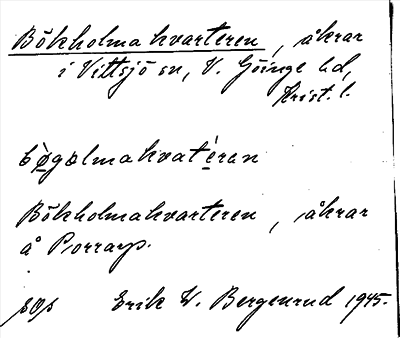 Bökholmakvarteren, åkrar
i Vittsjö sn, V. Göinge hd,
Krist. l.
bø̀gælmakvatéran
Bökholmakvarteren, åkrar
å Porrarp.
Erik W. Bergenrud 1945.